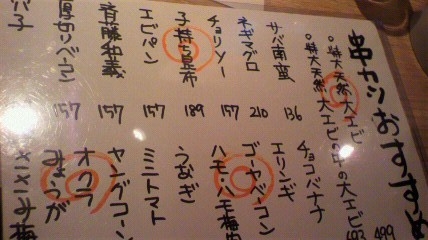 串カツおすすめ
○特大天然大エビ 499
○特大天然大エビの中の大エビ 693
サバ南蛮 136
ネギマグロ 210
チョリソー 157
子持ち昆布 189
エビパン 157
斉藤和義 157
厚切りベーコン 157
チョコバナナ
エリンギ
ゴーヤベーコン
ハモ・ハモ梅肉
うなぎ
ミニトマト
ヤングコーン
オクラ
みょうが